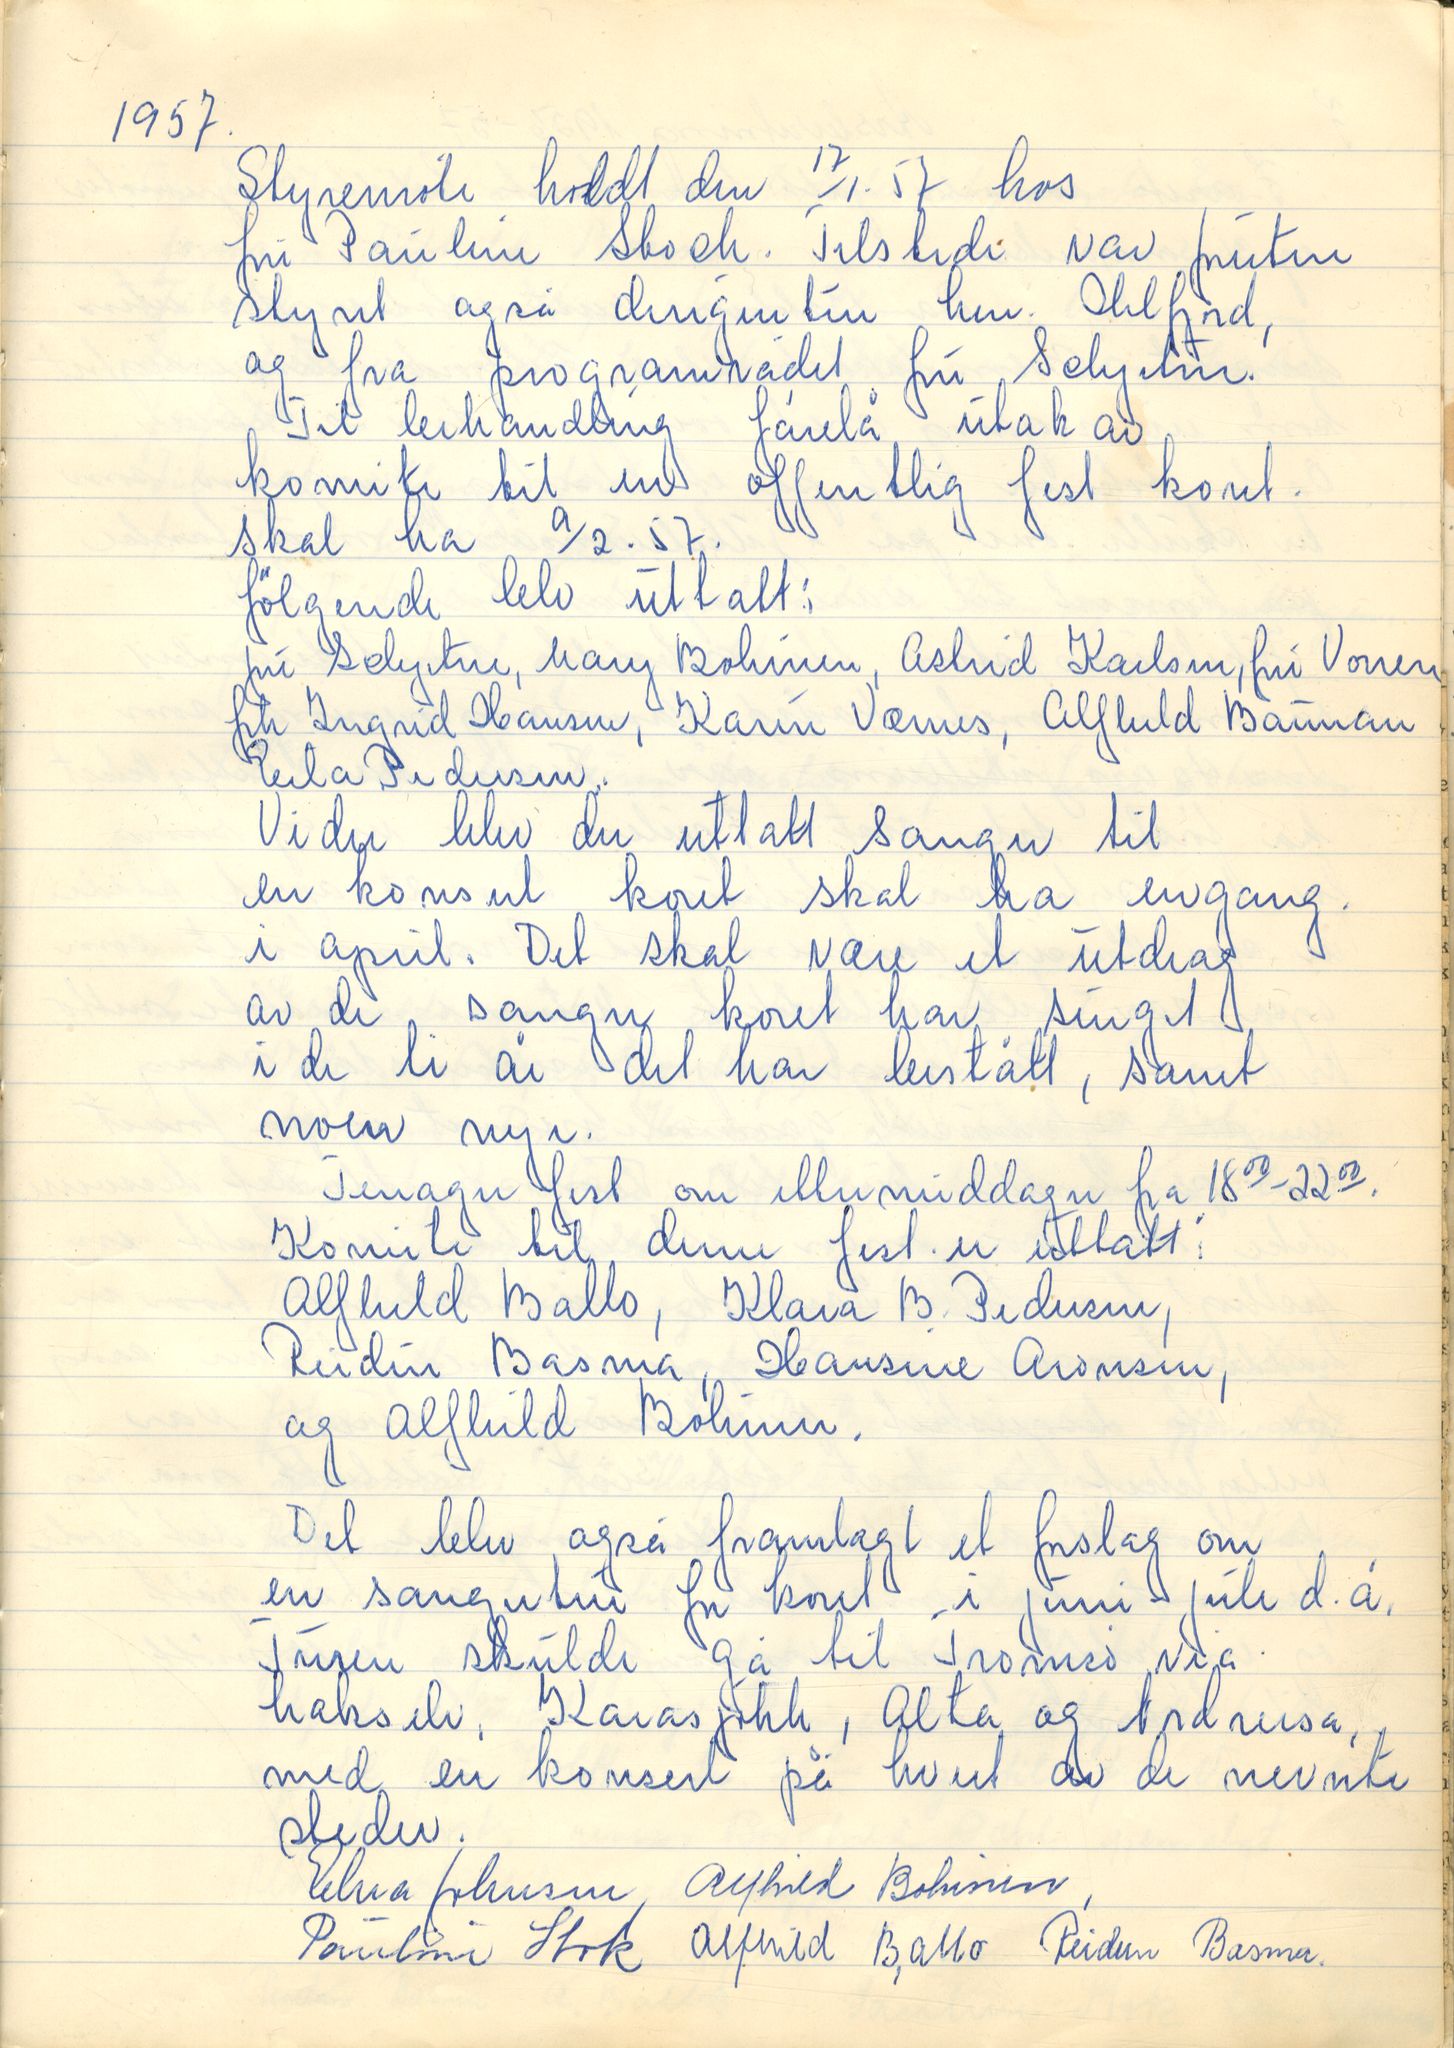 1957.
Styremöte holdt den 17/1.57 hos
fru Pauline Stock. Tilstede var fruten
styret også dirigenten herr. Ihlfjord,
og fra programrådet fru Selyetun.
Til behandling förelå utak av
komite til en offentlig fest koret.
skal ha 9/2.57.
fölgende blev uttatt:
fru Selyetun, Mary Bohinen, Astrid Karlsen, fru Vonen
frk Ingrid Hansen, Karin Værnes, Alfhild Bauman
Pedersen.
Vider blev der uttatt sanger til
en konsert koret skal ha engang.
i april. Det skal være et utdrag
av de sanger koret har sunget
i de ti år det har bestått, samt
noen nye.
Tenager fest om ettermiddagen fra 18⁰⁰-22⁰⁰.
Komite til denne fest er uttatt:
Alfhild Ballo, Klara B. Pedersen,
Reidun Basma, Hansine Aronsen,
og Alfhild Bohinen.
Det blev også framlagt et forslag om
en sangertur for koret i juni-juli d.å.
Turen skulde gå til Tromsö via
Lakselv, Karasjokk, Alta og Nordreisa,
med en konsert på hvert av de nevnte
steder.
Elna Johnsen, Alfhild Bohinen,
Pauline Stok Alfhild Ballo Reidun Basma.